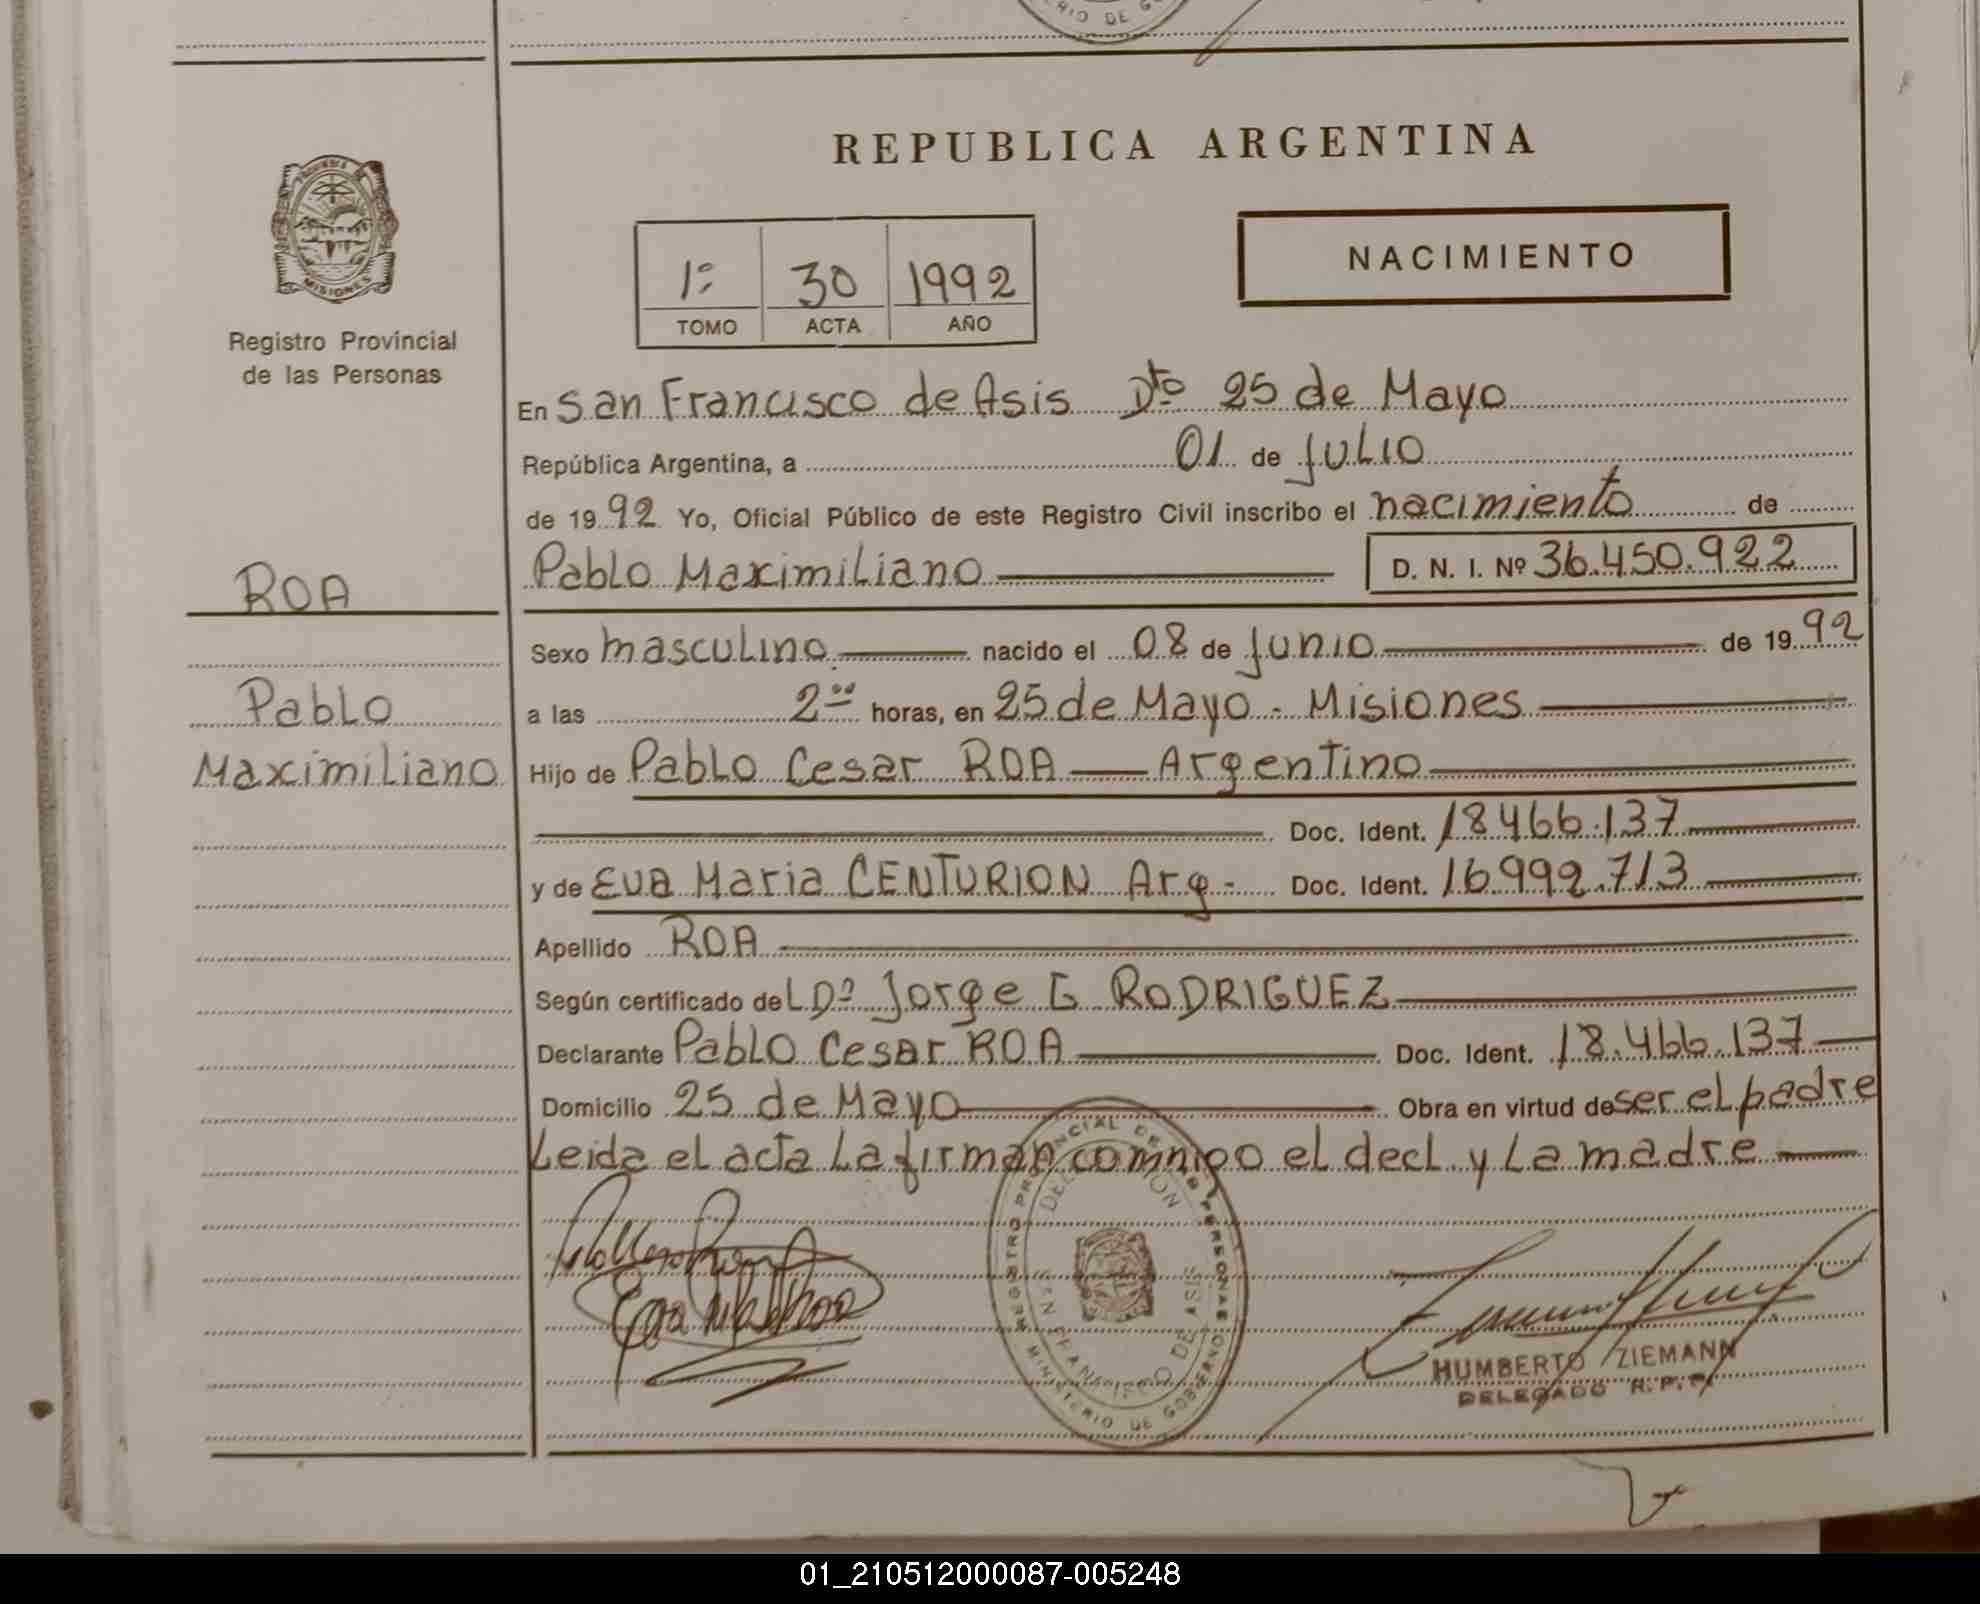 REPUBLICA ARGENTINA
NACIMIENTO
1º 30 1992
TOMO ACTA AÑO
MISIONES
Registro Provincial
de las Personas
En San Francisco de Asis Dto 25 de Mayo
República Argentina, a 01 de JULIO
de 1992 Yo, Oficial Público de este Registro Civil inscribo el nacimiento de
Pablo Maximiliano D. N. I. Nº 36.450.922
ROA
Pablo
Maximiliano
Sexo masculino nacido el 08 de Junio de 1992
a las 2 00 horas, en 25 de Mayo - Misiones
Hijo de Pablo Cesar ROA — Argentino
Doc. Ident. 18466.137
y de Eva Maria CENTURION Arg - Doc. Ident. 16.992.713
Apellido ROA
Según certificado del Dº Jorge G RODRIGUEZ
Declarante Pablo Cesar ROA Doc. Ident. 18.466.137
Domicilio 25 de Mayo Obra en virtud de ser el padre
Leida el acta La firman conmigo el decl. y La madre
REGISTRO PROVINCIAL DE LAS PERSONAS
MINISTERIO DE GOBIERNO
DELEGACION
SAN FRANCISCO DE ASIS
HUMBERTO ZIEMANN
DELEGADO R.P.P.
01_210512000087-005248